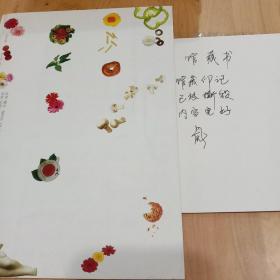 馆藏书
馆藏印记
已被撕毁
内容完好